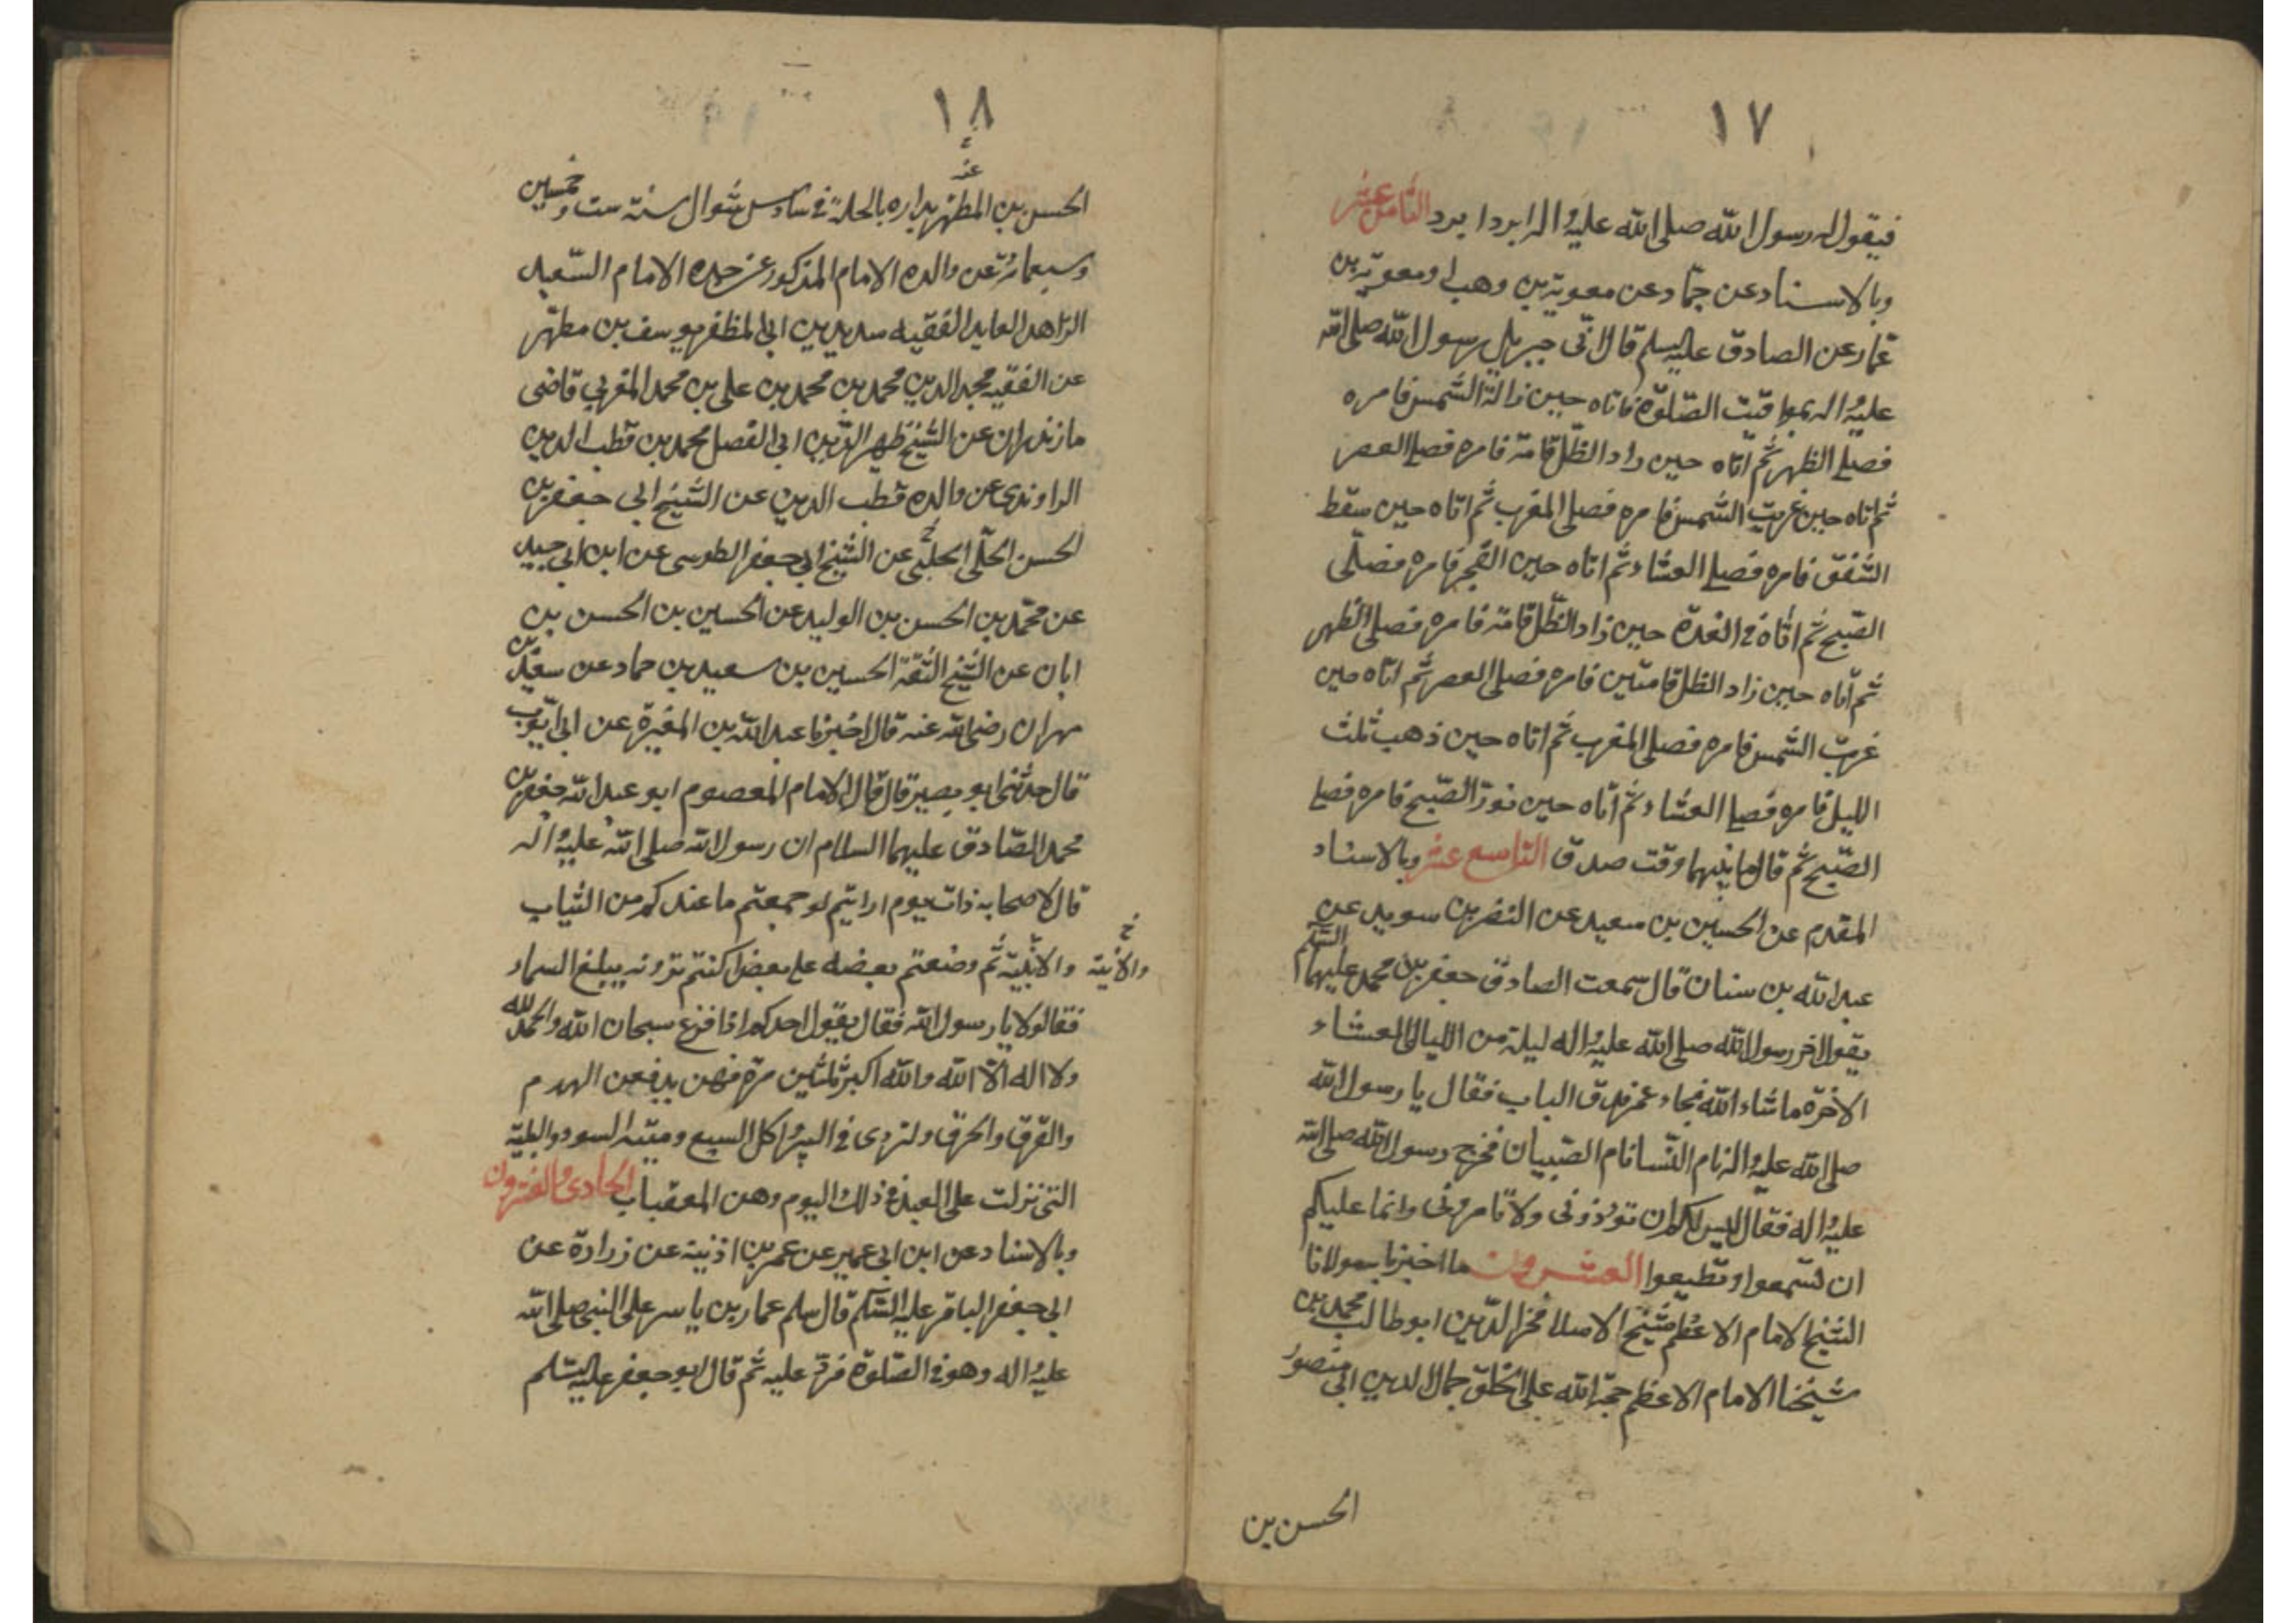 ١٧
فيقول له رسول الله صلى الله عليه واله ابرد ابرد الثامن عشر
وبالاسناد عن حماد عن معوية بن وهب او معوية بن
عمار عن الصادق عليه السلم قال اتى جبريل رسول الله صلى الله
عليه واله بمواقيت الصلوة فاتاه حين زالة الشمس فامره
فصلى الظهر ثم اتاه حين زاد الظل قامة فامره فصلى العصر
ثم اتاه حين غربت الشمس فامره فصلى المغرب ثم اتاه حين سقط
الشفق فامره فصلى العشاء ثم اتاه حين الفجر فامره فصلّى
الصبح ثم اتاه في الغدة حين زاد الظل قامة فامره فصلى الظهر
ثم اتاه حين زاد الظل قامتين فامره فصلى العصر ثم اتاه حين
غربت الشمس فامره فصلى المغرب ثم اتاه حين ذهب ثلث
الليل فامره فصلى العشاء ثم اتاه حين نور الصبح فامره فصلى
الصبح ثم قال ما بينهما وقت صدق التاسع عشر وبالاسناد
المقدم عن الحسين بن سعيد عن النضر بن سويد عن
عبد الله بن سنان قال سمعت الصادق جعفر بن محمد عليهما السلم
يقول اخر رسول الله صلى الله عليه واله ليلة من الليالى العشاء
الاخرة ما شاء الله فجاء عمر فدق الباب فقال يا رسول الله
صلى الله عليه واله نام النسا نام الصبيان فخرج رسول الله صلى الله
عليه واله فقال ليس لكم ان توذونى ولا تامرونى وانما عليكم
ان تسمعوا وتطيعوا العشرون ما اخبرنا به مولانا
الشيخ الامام الاعظم شيخ الاسلا فخر الدين ابو طالب محمد بن
شيخنا الامام الاعظم حجة الله على الخلق جمال الدين ابى منصور
الحسن بن
١٨
الحسن بن المطهر بداره بالحلة في سادس شوال سنة ست وخمسين
وسبعمائة عن والده الامام المذكور عن جده الامام السعيد
الزاهد العابد الفقيه سديد بن ابى المظفر يوسف بن مطهر
عن الفقيه مجد الدين محمد بن محمد بن على بن محمد المغربي قاضى
مازندران عن الشيخ ظهير الدين ابى الفضل محمد بن قطب الدين
الراوندى عن والده قطب الدين عن الشيخ ابى جعفر بن
الحسن الحلّى الحلبى عن الشيخ ابى جعفر الطوسى عن ابن ابى جيد
عن محمد بن الحسن بن الوليد عن الحسين بن الحسن بن
ابان عن الشيخ الثقة الحسين بن سعيد بن حماد عن سعيد بن
مهران رضى الله عنه قال اخبرنا عبد الله بن المغيرة عن ابى ايوب
قال حدثنى ابو بصير قال قال الامام المعصوم ابو عبد الله جعفر بن
محمد الصادق عليهما السلام ان رسول الله صلى الله عليه واله
قال لاصحابه ذات يوم ارايتم لو جمعتم ما عندكم من الثياب
والانية والابنية ثم وضعتم بعضه على بعض اكنتم ترونه يبلغ السماء
فقالوا لا يا رسول الله فقال يقول احدكم اذا فزع سبحان الله والحمد لله
ولا اله الا الله والله اكبر ثلثين مرة فهن يدفعن الهدم
والغرق والحرق والتردى في البير واكل السبع وميتة السوء والبلية
التى نزلت على العبد في ذلك اليوم وهن المعقبات الحادى والعشرون
وبالاسناد عن ابن ابى عمير عن عمر بن اذنية عن زرارة عن
ابى جعفر الباقر عليه السلم قال سلم عمار بن ياسر على النبى صلى الله
عليه واله وهو في الصلوة فرد عليه ثم قال ابو جعفر عليه السلم